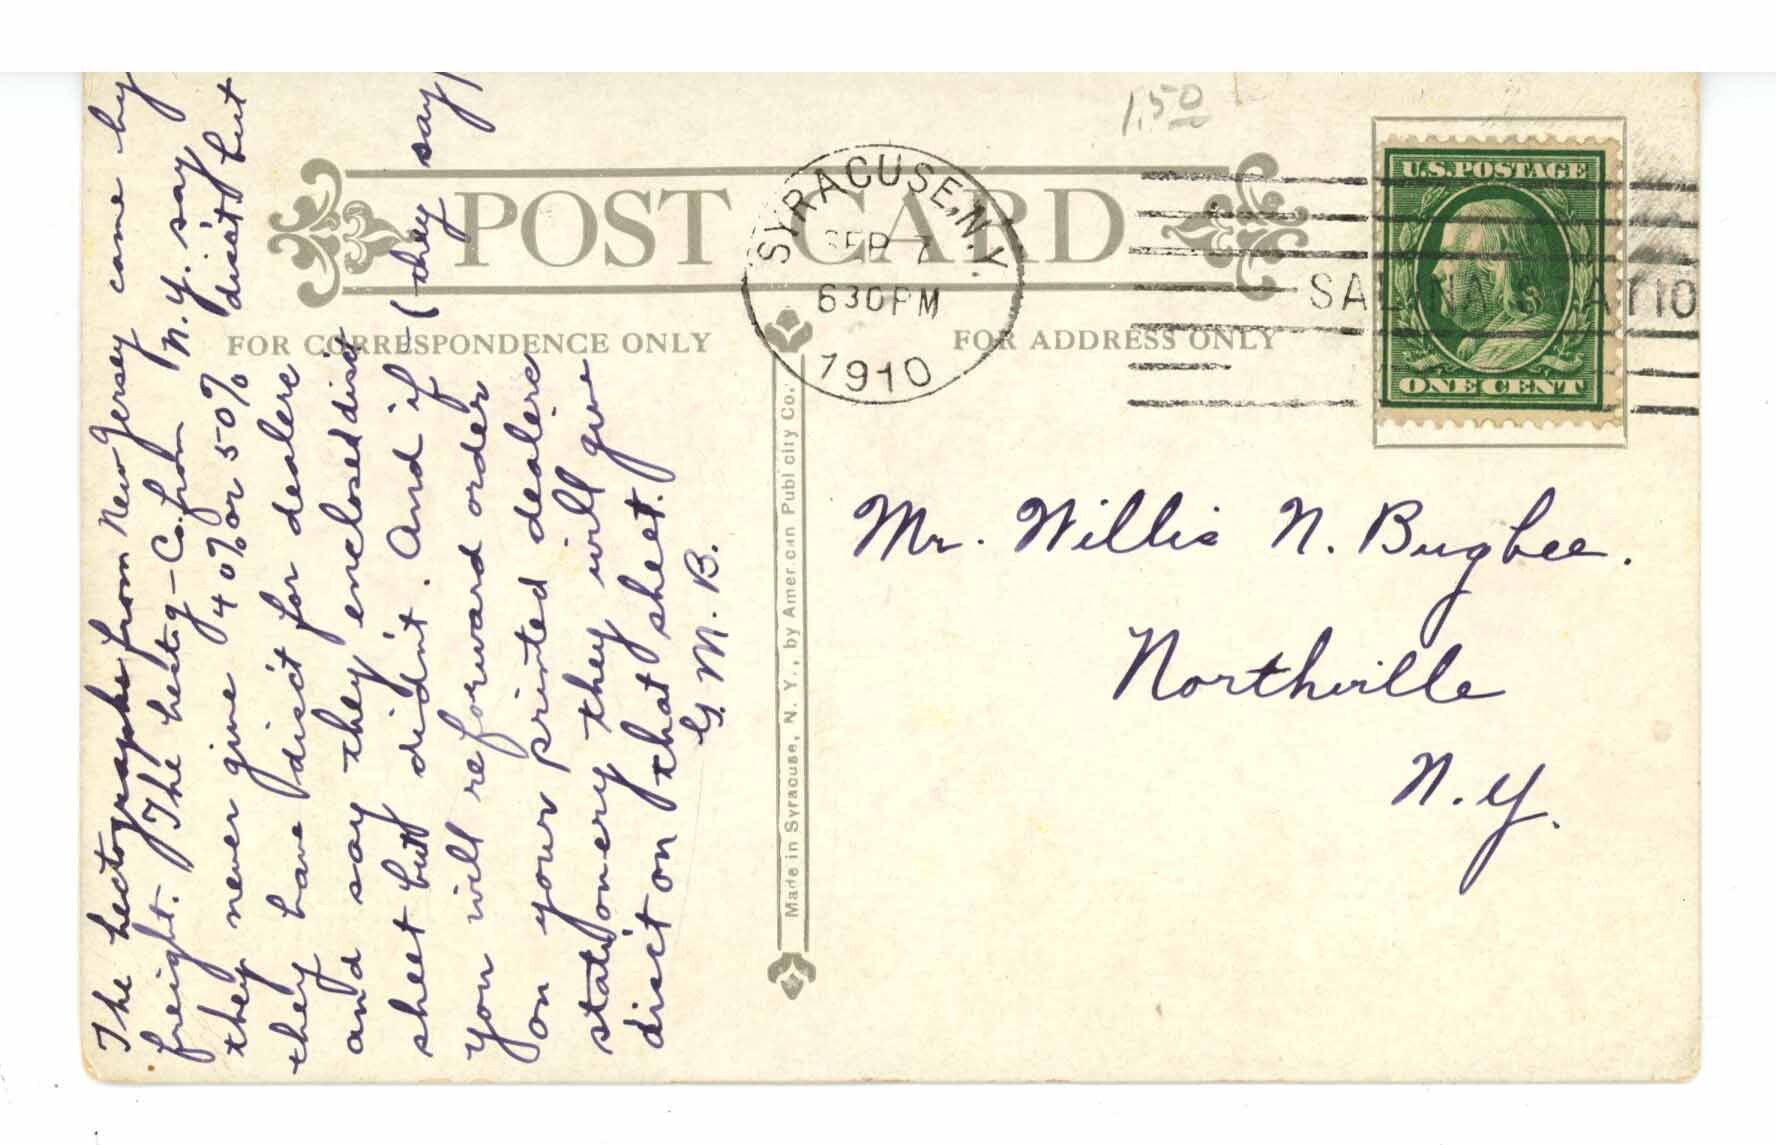 1.50
SYRACUSE, N.Y.
SEP 7
630 PM
1910
SALINA STATIO
U.S. POSTAGE
ONE CENT
POST CARD
FOR CORRESPONDENCE ONLY
FOR ADDRESS ONLY
The hectographs from New Jersey came by
freight. The hektog-Co. from N.Y. say
they never give 40% or 50% disc't but
they have disc't for dealers
and say they enclosed disct
sheet but didn't. And if (they say)
you will reforward order
on your printed dealers
stationery they will give
disc't on that sheet.
G. M. B.
Made in Syracuse, N. Y., by American Publicity Co.
Mr. Willis N. Bugbee.
Northville
N.Y.